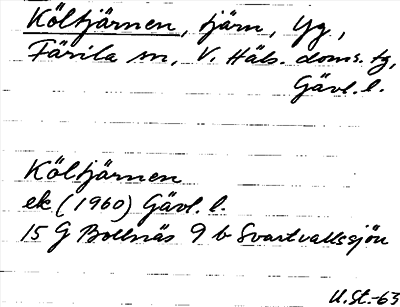 Költjärnen, tjärn, Yg,
Färila sn, V. Häls. doms. tg,
Gävl. l.
Költjärnen
ek (1960) Gävl. l.
15 G Bollnäs 9 b Svartvallssjön
U.St.-63